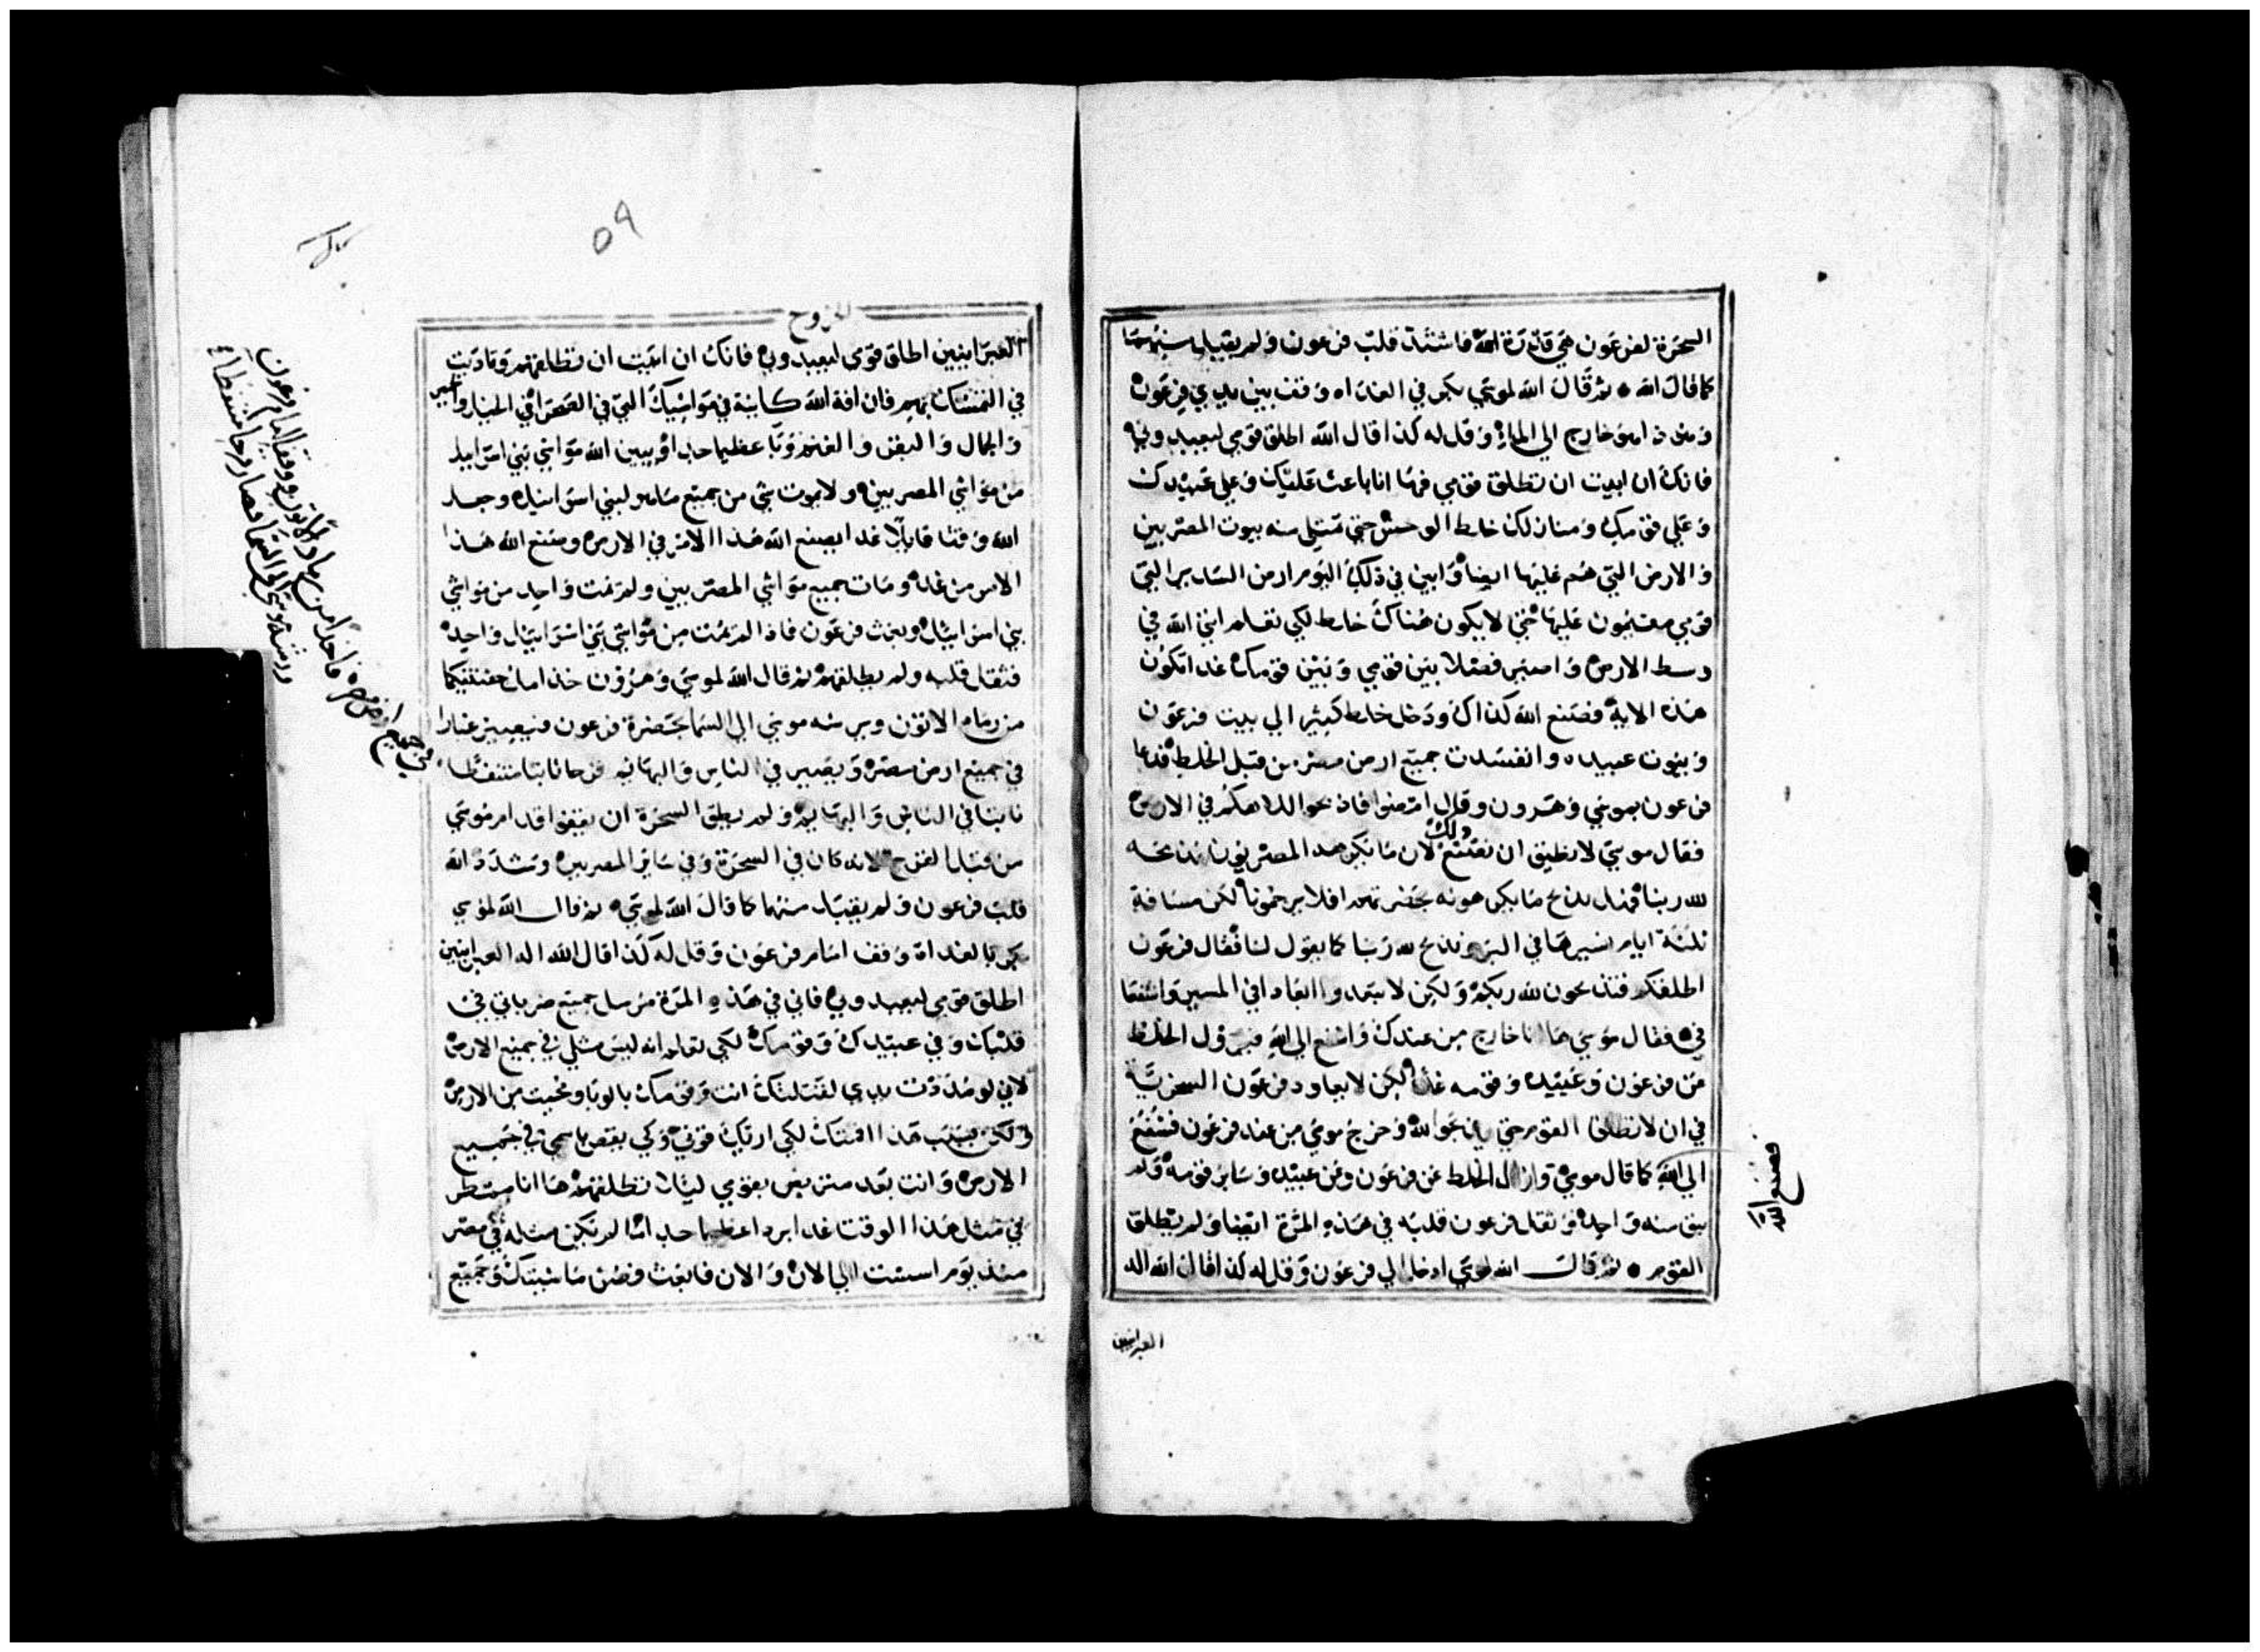 السحرة لفرعون هي قدرة الله فاشتد قلب فرعون ولم يقبل منهما
كما قال الله ثم قال الله لموسي بكر في الغداه وقف بين يدي فرعون
وهو ذا هو خارج الي الماء وقل له كذا قال الله اطلق قومي ليعبدوني
فانك ان ابيت ان تطلق قومي فها انا باعث عليك وعلي عبيدك
وعلي قومك ومنازلك خلط الوحش حتي تمتلي منه بيوت المصريين
والارض التي هم عليها ايضا وابين في ذلك اليوم ارض السدير التي
قومي مقيمون عليها حتي لا يكون هناك خلط لكي تعلم اني الله في
وسط الارض واصير فصلا بين قومي وبين قومك غدا تكون
هذه الاية فصنع الله كذاك ودخل خلط كثير الي بيت فرعون
وبيوت عبيده وانفسدت جميع ارض مصر من قبل الخلط فدعا
فرعون بموسي وهرون وقال امضوا فاذبحوا لالاهكم في الارض
فقال موسي لا نطيق ان نصنع ذلك لان ما يكرهه المصريون نذبحه
لله ربنا فهل نذبح ما يكرهونه بحضرتهم افلا يرجمونا لكن مسافة
ثلثة ايام نسيرها في البر ونذبح لله ربنا كما يقول لنا فقال فرعون
اطلقكم فتذبحون لله ربكم ولكن لا تبعدوا ابعادا في المسير واشفعا
في فقال موسي ها انا خارج من عندك واشفع الي الله فيزول الخلط
عن فرعون وعبيده وقومه غدا لكن لا يعاود فرعون السخرية
في ان لا يطلق القوم حتي يذبحوا لله وخرج موسي من عند فرعون فشفع
الي الله كما قال موسي وازال الخلط عن فرعون وعن عبيده وساير قومه ولم
فصنع الله
يبق منه واحد وثقل فرعون قلبه في هذه المرة ايضا ولم يطلق
القوم ثم قال الله لموسي ادخل الي فرعون وقل له كذا قال الله اله
العبرانيين
الخروج
٥٩
العبرانيين اطلق قومي ليعبدوني فانك ان ابيت ان تطلقهم وتماديت
في التمسك بهم فان افة الله كاينة في مواشيك التي في الصحرا في الخيل والحمير
والجمال والبقر والغنم وبا عظيما جدا ويبين الله مواشي بني اسراييل
من مواشي المصريين ولا يموت شي من جميع ما هو لبني اسراييل وجعل
الله وقتا قايلا غدا يصنع الله هذا الامر في الارض وصنع الله هذا
الامر من غد ومات جميع مواشي المصريين ولم تمت واحد من مواشي
بني اسراييل وبعث فرعون فاذا لم يمت من مواشي بني اسراييل واحد
فثقل قلبه ولم يطلقهم ثم قال الله لموسي وهرون خذا ملء حفنتيكما
من رماد الاتون ويرشه موسي الي السما بحضرة فرعون فيصير غبارا
في جميع ارض مصر ويصير في الناس والبهايم قرحا نابتا متنفطا
في جميع ارض مصر فاخذا من رماد الاتون ووقفا امام فرعون
ورشه موسي الي السما فصار قرحا متنفطا
نابتا في الناس والبهايم ولم يطق السحرة ان يقفوا قدام موسي
من قبل القرح لانه كان في السحرة وفي ساير المصريين وشدد الله
قلب فرعون ولم يقبل منهما كما قال الله لموسي ثم قال الله لموسي
بكر بالغداة وقف امام فرعون وقل له كذا قال الله اله العبرانيين
اطلق قومي ليعبدوني فاني في هذه المرة مرسل جميع ضرباتي في
قلبك وفي عبيدك وقومك لكي تعلم انه ليس مثلي في جميع الارض
لاني لو مددت يدي لقتلتك انت وقومك بالوبا ومحيت من الارض
ولكن بسبب هذا اقمتك لكي اريك قوتي وكي يقص باسمي في جميع
الارض وانت بعد متربص بقومي ليلا تطلقهم ها انا ممطر
في مثل هذا الوقت غدا بردا عظيما جدا ما لم يكن مثله في مصر
منذ يوم اسست الي الان والان فابعث فصن ماشيتك وجميع